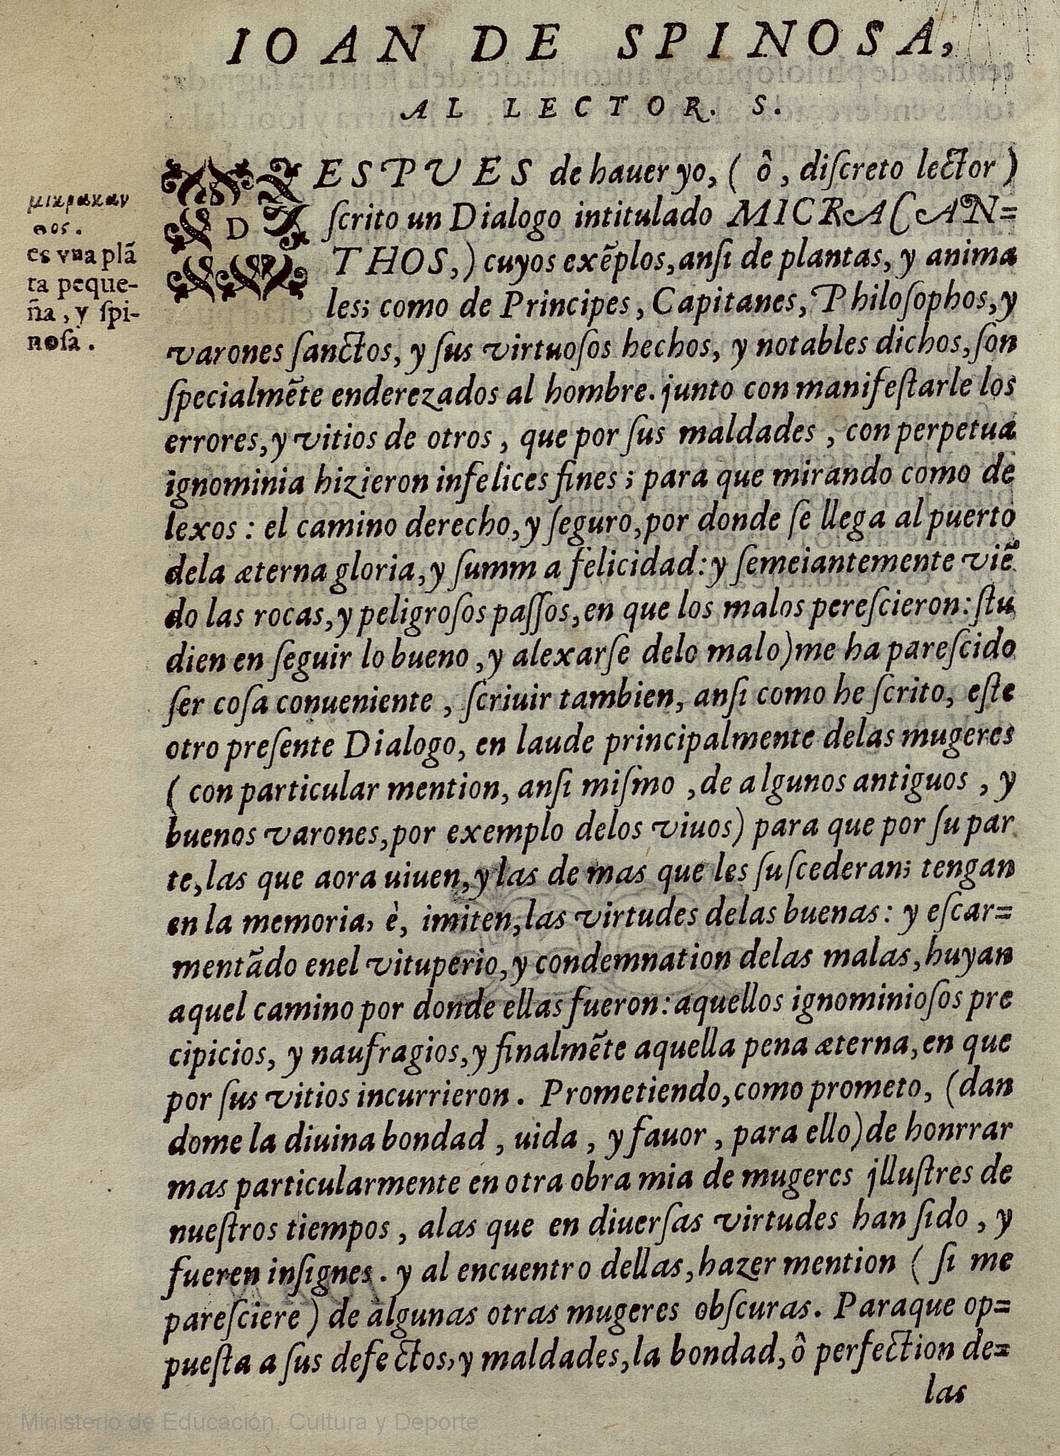 IOAN DE SPINOSA,
AL LECTOR. S.
μικρακαν
θος.
es vna plã
ta peque-
ña, y ſpi-
noſa.
DESPVES de hauer yo, ( ô, diſcreto lector )
ſcrito un Dialogo intitulado MICRACAN=
THOS,) cuyos exẽplos, anſi de plantas, y anima
les; como de Principes, Capitanes, Philoſophos, y
varones ſanctos, y ſus virtuoſos hechos, y notables dichos, ſon
ſpecialmẽte enderezados al hombre. junto con manifeſtarle los
errores, y vitios de otros, que por ſus maldades, con perpetua
ignominia hizieron infelices fines; para que mirando como de
lexos: el camino derecho, y ſeguro, por donde ſe llega al puerto
dela æterna gloria, y ſumm a felicidad: y ſemeiantemente viẽ
do las rocas, y peligroſos paſſos, en que los malos pereſcieron: ſtu
dien en ſeguir lo bueno, y alexarſe delo malo) me ha pareſcido
ſer coſa conueniente, ſcriuir tambien, anſi como he ſcrito, eſte
otro preſente Dialogo, en laude principalmente delas mugeres
( con particular mention, anſi miſmo, de algunos antiguos, y
buenos varones, por exemplo delos viuos) para que por ſu par
te, las que aora uiuen, y las de mas que les ſuſcederan; tengan
en la memoria, è, imiten, las virtudes delas buenas: y eſcar=
mentãdo enel vituperio, y condemnation delas malas, huyan
aquel camino por donde ellas fueron: aquellos ignominioſos pre
cipicios, y naufragios, y finalmẽte aquella pena æterna, en que
por ſus vitios incurrieron. Prometiendo, como prometo, (dan
dome la diuina bondad, uida, y fauor, para ello) de honrrar
mas particularmente en otra obra mia de mugeres jlluſtres de
nueſtros tiempos, alas que en diuerſas virtudes han ſido, y
fueren inſignes. y al encuentro dellas, hazer mention ( ſi me
pareſciere ) de algunas otras mugeres obſcuras. Paraque op=
pueſta a ſus defectos, y maldades, la bondad, ô perfection de=
las
Ministerio de Educación, Cultura y Deporte